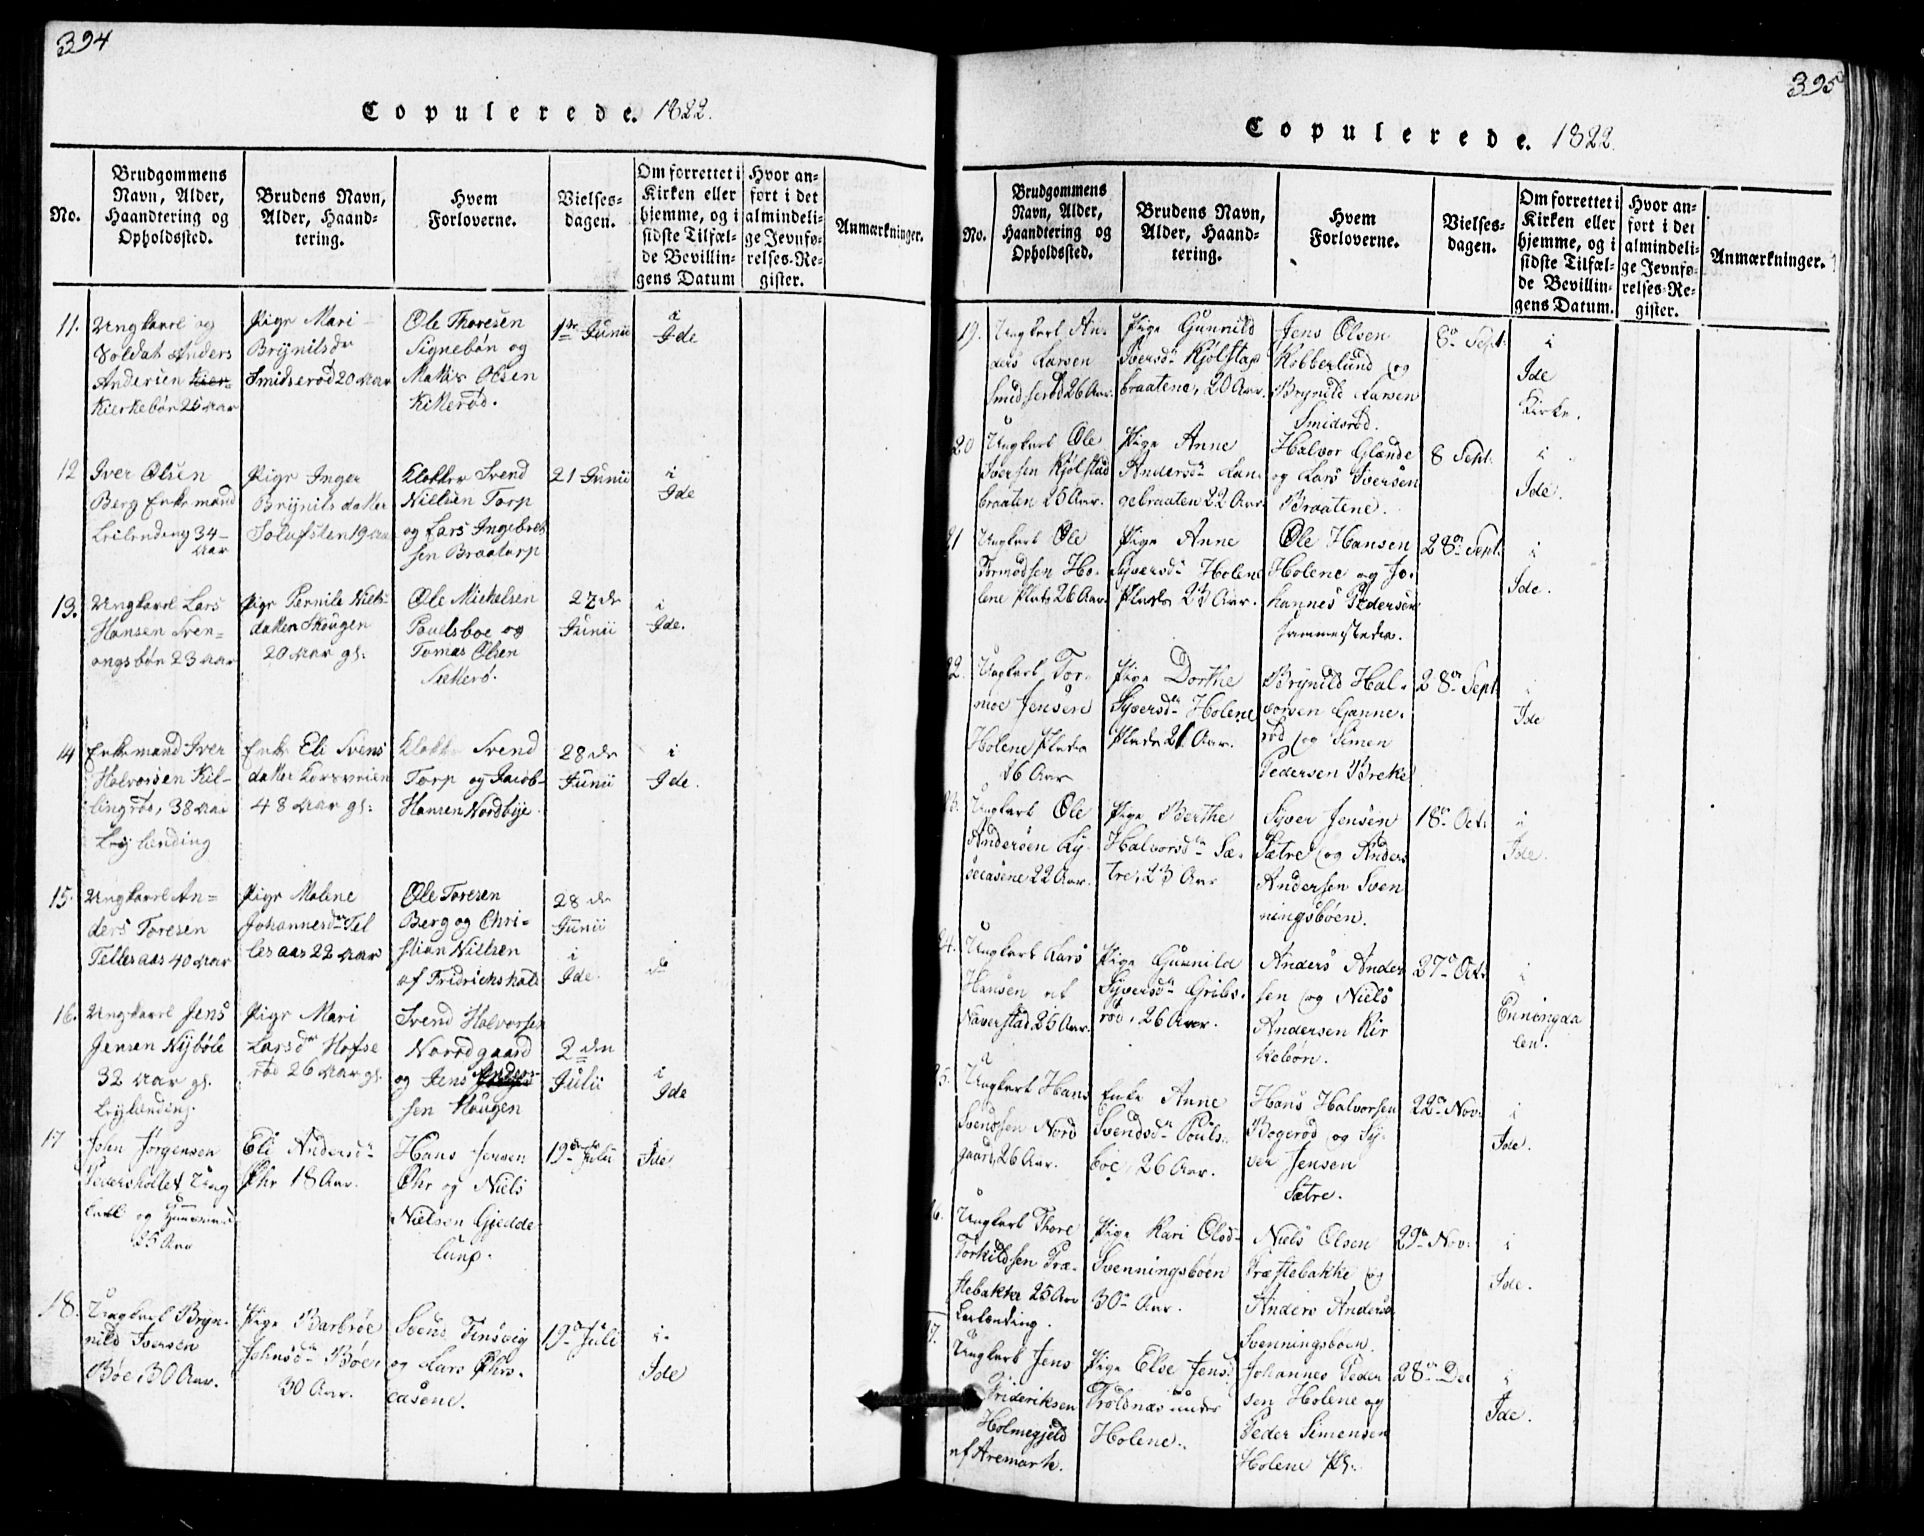 394
Copulerede. 1822.
No.
Brudgommens
Navn, Alder,
Haandtering og
Opholdssted.
Brudens Navn,
Alder, Haand-
tering.
Hvem
Forloverne.
Vielses-
dagen.
Om forrettet i
Kirken eller
hjemme, og i
sidste Tilfæl-
de Bevillin-
gens Datum
Hvor an-
ført i det
almindeli-
ge Jevnfø-
relses-Re-
gister.
Anmærkninger.
11.
Ungkarl og
Soldat Anders
Andersen
Kierkebön 25 Aar
Pige Mari
Brynilsdr
Smidserød 20 Aar
Ole Thoresen
Signebön og
Mathis Olsen
Killerød.
1ste Junii
i
Ide
12
Iver Olsen
Berg Enkemand
Leilending 34
Aar
Pige Inger
Brynils datter
19 Aar
Klokker Svend
Nielsen Torp
og Lars Ingebret
sen Braatorp
21 Junii
i
Ide
13.
Ungkarl Lars
Hansen Sven-
ongsbön 23 Aar
Pige Pernile Niels
datter Skougen
20 Aar gl.
Ole Mickelsen
Poulsboe og
Tomas Olsen
27de
Junii
i
Ide.
14
Enkemand Iver
Halvorsen Kil-
lingrød, 38 Aar
Leylending
Enke Eli Svens
datter Korsveien
48 Aar gl.
Klokker Svend
Torp og Jacob
Hansen Nordbye
28de
Junii
i
Ide.
15.
Ungkarl An-
ders Toresen
Tellesaas 40 Aar
Pige Malene
Johannesdr Tel
lesaas 22 Aar
Ole Toresen
Berg og Chri-
stian Nielsen
af Fridrickshald
28de
Junii
i
Ide.
16.
Ungkarl Jens
Jensen Nyböle
32 Aar gl.
Leylending.
Pige Mari
Larsdr Hofse
rød 26 Aar gl.
Svend Halvorsen
Noredgaard
og Jens Anders
sen Hougen
2den
Julii
i
Ide
17
John Jørgensen
Pedersholtet Ung
karl og Huusmand
25 Aar
Eli Andersd
Öhr 18 Aar.
Hans Jensen
Öhr og Niels
Nielsen Gjedde
lund.
19de Julii
i
Ide
18.
Ungkarl Bryn-
nild Iversen
Böe, 30 Aar.
Pige Barbröe
Johnsd Böe,
30 Aar.
Svend Tinsvig
og Lars Öhrs-
casene.
19 Juli
i
Ide
395
Copulerede. 1822.
No.
Brudgommens
Navn, Alder,
Haandtering og
Opholdssted.
Brudens Navn,
Alder, Haand-
tering.
Hvem
Forloverne.
Vielses-
dagen.
Om forrettet i
Kirken eller
hjemme, og i
sidste Tilfæl-
de Bevillin-
gens Datum.
Hvor an-
ført i det
almindeli-
ge Jevnfø-
relses-Re-
gister.
Anmærkninger.
19.
Ungkarl An-
ders Larsen
Smidserød 26 Aar.
Pige Gunnild
Iversd Kjölstad
braatene, 20 Aar.
Jens Olsen
Kobberlund og
Brynild Larsen
Smidsrød.
8 Sept.
i
Ide
Kirke.
20
Ungkarl Ole
Iversen Kjölstad
braaten 25 Aar.
Pige Anne
Andersd Lan-
gebraaten 22 Aar.
Halvor Glende
og Lars Iversen
Braatene.
8 Sept.
i
Ide.
21
Ungkarl Ole
Tormodsen Ho-
lene Plads 26 Aar
Pige Anne
Syversd Holene
Plads 23 Aar.
Ole Hansen
Holene og Jo-
hannes Pedersen
sammestedes.
28 Sept.
i
Ide.
22.
Ungkarl Tor-
moe Jensen
Holene Plads
26 Aar
Pige Dorthe
Syversd Holene
Plads 21 Aar.
Brynild Hal-
vorsen Ganne-
röd og Simen
Pedersen Breke
28 Sept.
i
Ide
23.
Ungkarl Ole
Andersen
22 Aar.
Pige Berthe
Halvorsd Sæ-
tre, 23 Aar
Syver Jensen
Sætre og Anders
Andersen Sven
ningsböen.
18 Oct.
i
Ide.
24.
Ungkarl Lars
Hansen af
Naverstad 25 Aar.
Pige Gunnild
Syversd Gribs-
röd, 26 Aar.
Anders Ander
sen og Niels
Andersen Kir
kebön.
27 Oct.
i
Enningda
len.
25.
Ungkarl Hans
Svendsen Nord
gaard, 26 Aar.
Enke Anne
Svendsd Pouls-
boe, 26 Aar.
Hans Halvorsen
Bogeröd og Sy-
ver Jensen
Sætre.
22 Nov.
i
Ide.
26.
Ungkarl Thore
Torkildsen Præ-
stebakke 25 Aar
Leilending.
Pige Kari Olsd
Svenningsböen
30 Aar.
Niels Olsen
Præstebakke og
Anders Anders
Svenningsböen.
29 Nov.
i
Ide.
27.
Ungkarl Jens
Frideriksen
Holmegjeld
af Aremark.
Pige Else Jensd
Troldnæs under
Holene.
Johannes Peder
sen Holene og
Peder Simensen
Holene Pl.
28 Dec
i
Ide.